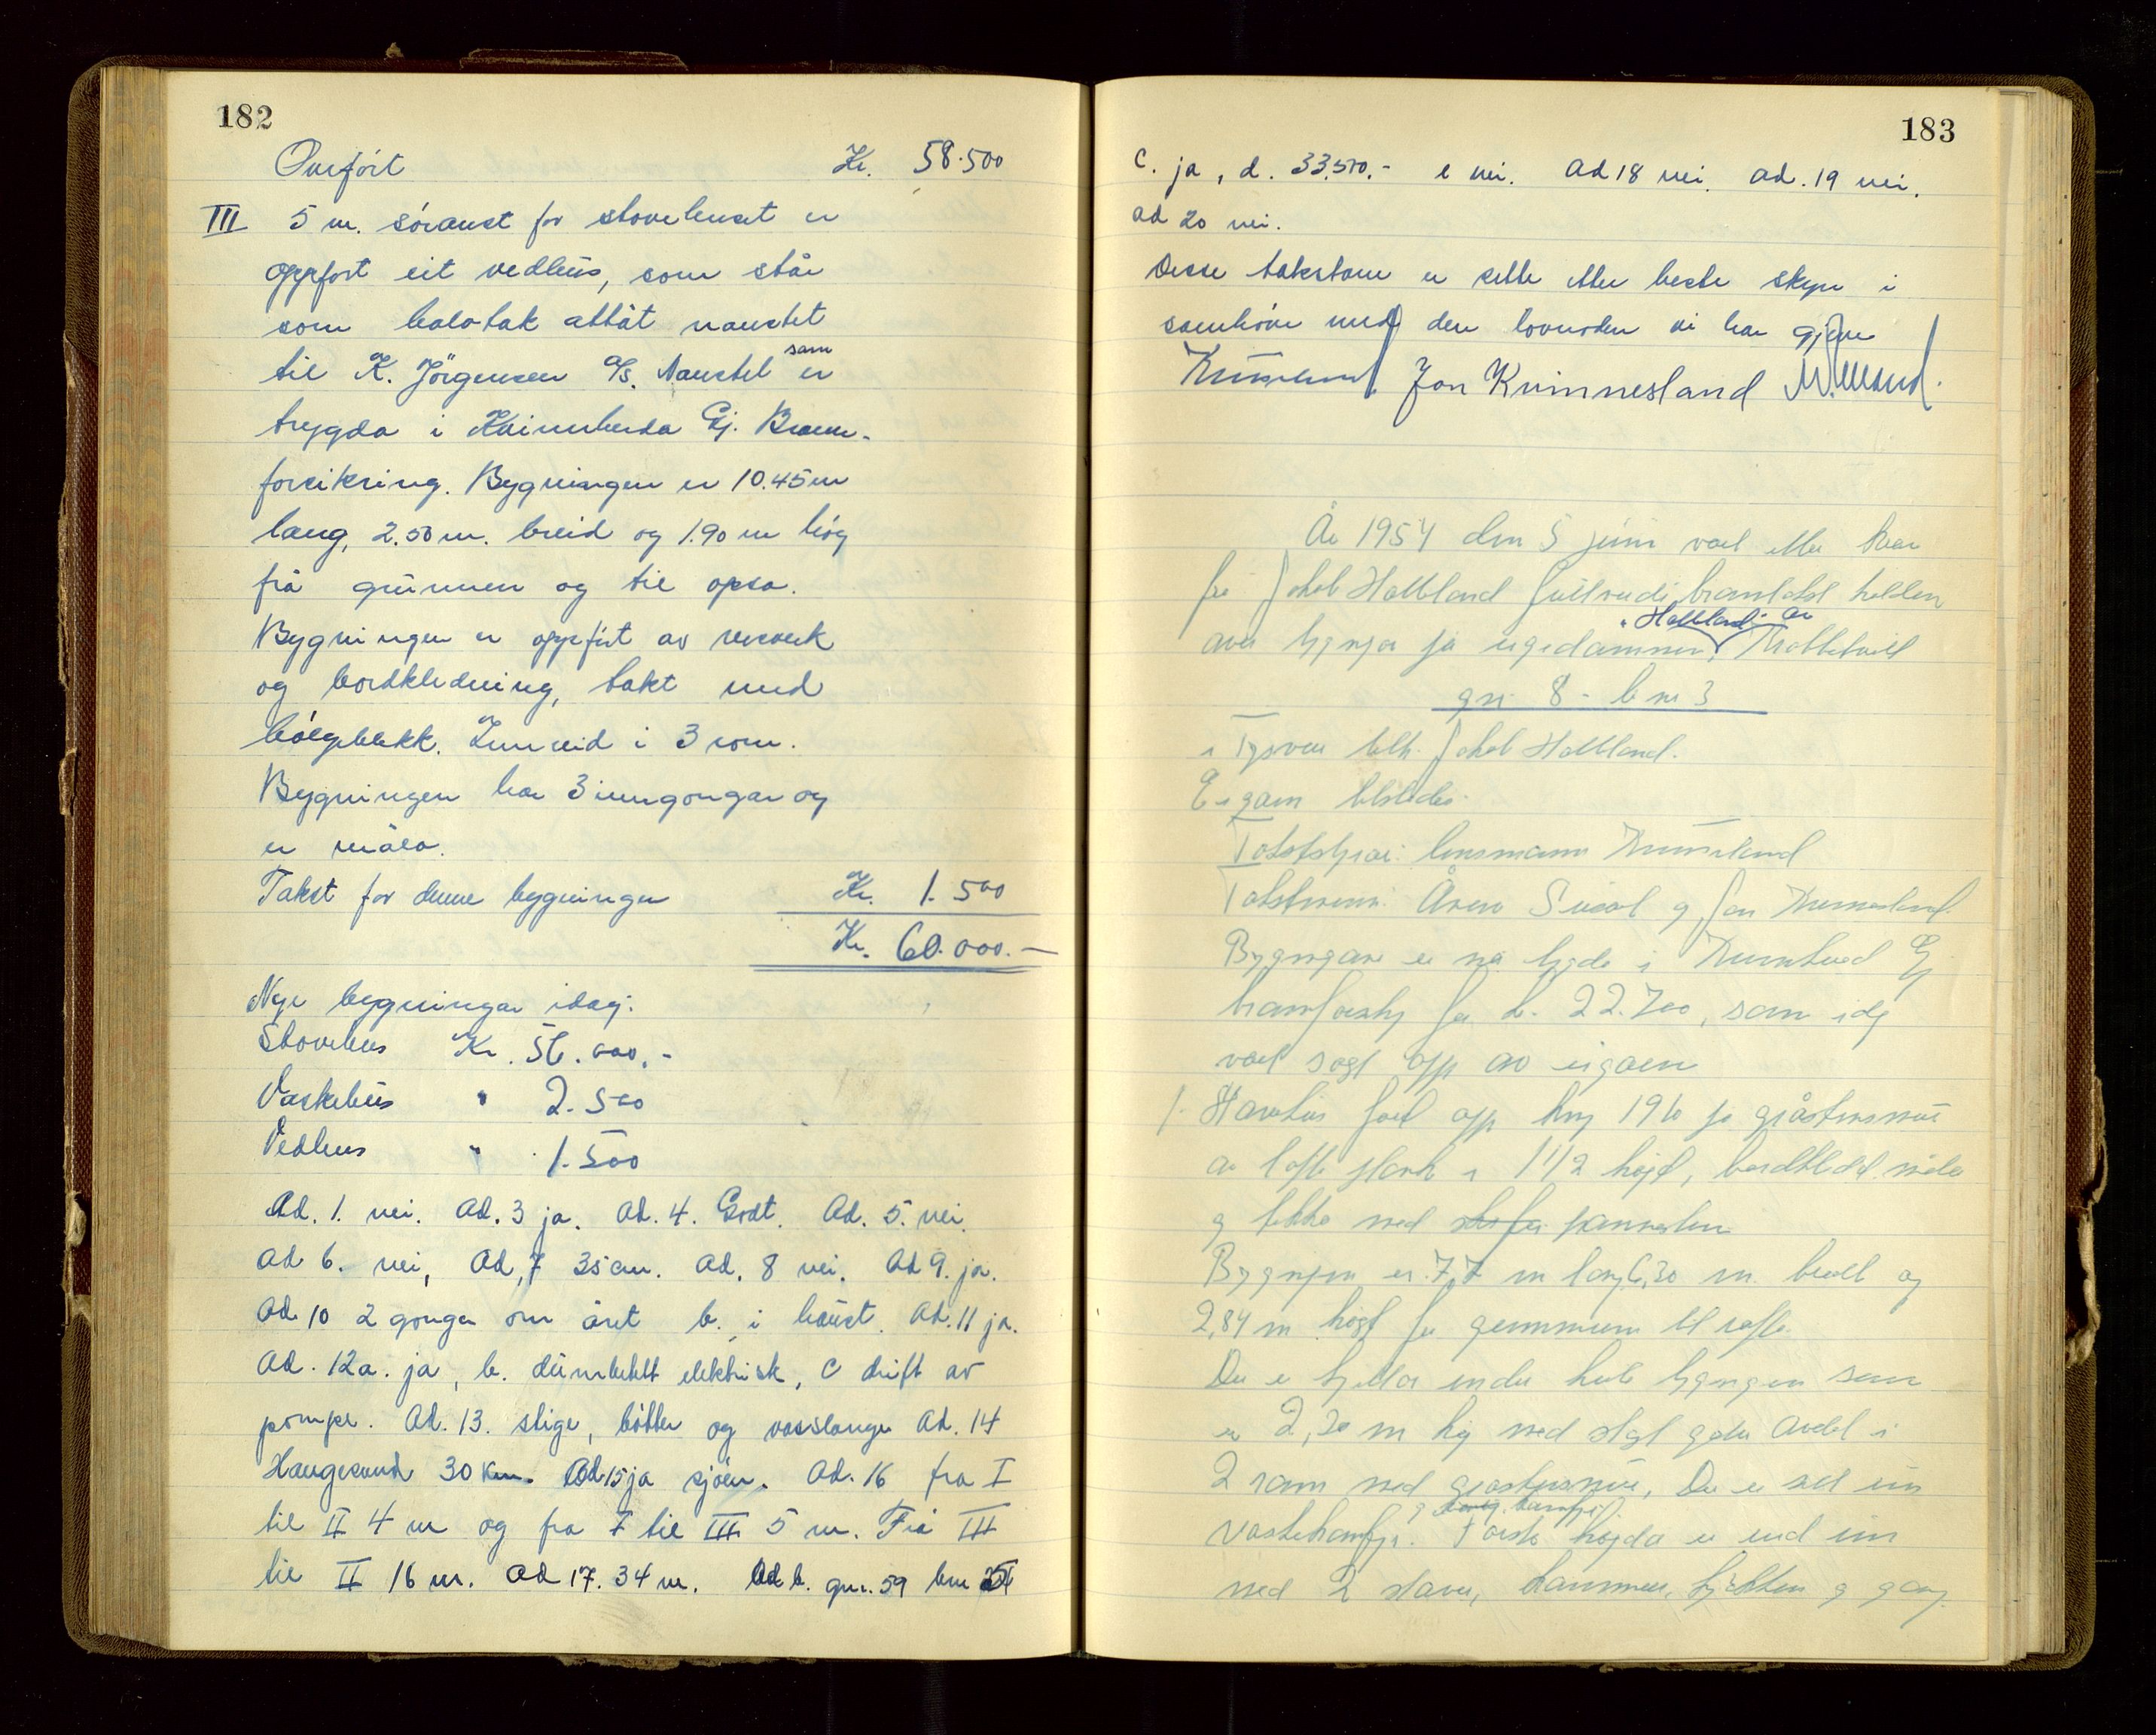 182
Overfört Kr. 58.500
III 5 m. söraust for stovehuset er
oppfört eit vedhus, som står
som halvtak attåt naustet
til K. Jörgensen A/S. Naustet som er
trygda i Kvinnherda Gj. Brann-
forsikring. Bygningen er 10.45 m
lang, 2.50 m. breid og 1.90 m hög
frå grunnen og til opsa.
Bygningen er oppfört av reisverk
og bordkledning, takt med
bölgeblekk. Innreid i 3 rom.
Bygningen har 3 inngongar og
er måla.
Takst for denne bygningen Kr. 1.500
Kr. 60.000.-
Nye bygningar idag:
Stovehus Kr. 56.000.-
Vaskehus " 2.500
Vedhus " 1.500
Ad. 1. nei. Ad. 3 ja. Ad. 4. Godt. Ad. 5. nei.
Ad 6. nei, Ad, 7 35 cm. Ad. 8 nei. Ad 9. ja.
Ad 10 2 gonger om året b. i haust. Ad. 11 ja.
Ad. 12a. ja, b. elektrisk, c drift av
pompe. Ad. 13. stige, bötter og vasslange Ad. 14
Haugesund 30 km. Ad 15 ja sjöen. Ad. 16 fra I
til II 4 m og fra I til III 5 m. Frå III
til II 16 m. Ad 17. 34 m. Ad b. gnr. 59 bnr
183
c. ja, d. 33.500.- e nei. Ad 18 nei. Ad. 19 nei.
Ad 20 nei.
Desse takstane er sette etter beste skyn i
samhöve med den lovnaden vi har gjeve
Jon Kvinnesland
År 1954 den 5 juni vart etter krav
frå Jakob Halleland fullverdi branntakst halden
over bygningar på eigedommen, "Halleland" av
gnr 8 - bnr 3
i Tysvær tilh. Jakob Halleland.
Eigaren tilstades.
Takststyrar: lensmann
Takstmenn: og Jon Kvinnesland.
Bygningane er nå trygda i Kvinnherad Gj
brannforsikr for kr. 22.700, som idag
vart sagt opp av eigaren
1. Våningshus fört opp kring 1910 på gråsteinsmur
av lafta plank i 1 1/2 högd, bordkledd måla
og tekka med skifer pannestein
Bygningen er 7,7 m lang 6,30 m. breidt og
2,84 m högt frå grunnmuren til rafta.
Det er kjellar under heile bygningen som
er 2,20 m hög med stöpt golv avdelt i
2 rom med gråsteinsmur, Det er reid inn
vaskekammers. Förste högda er reid inn
med 2 stover, kammers, kjökken og gang.